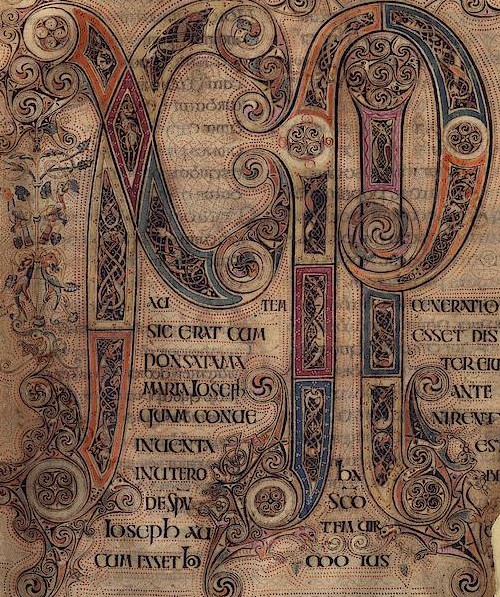 XP
AU TEM GENERATIO
SIC ERAT CUM ESSET DIS
PONSATAMA TER EIU
MARIA IOSEPH ANTE
QUAM CONUE NIRENT
INUENTA ES
INUTERO ha
DE SPU SCO
Ioseph AU TEM UIR
CUM ESSET ho MO IUS